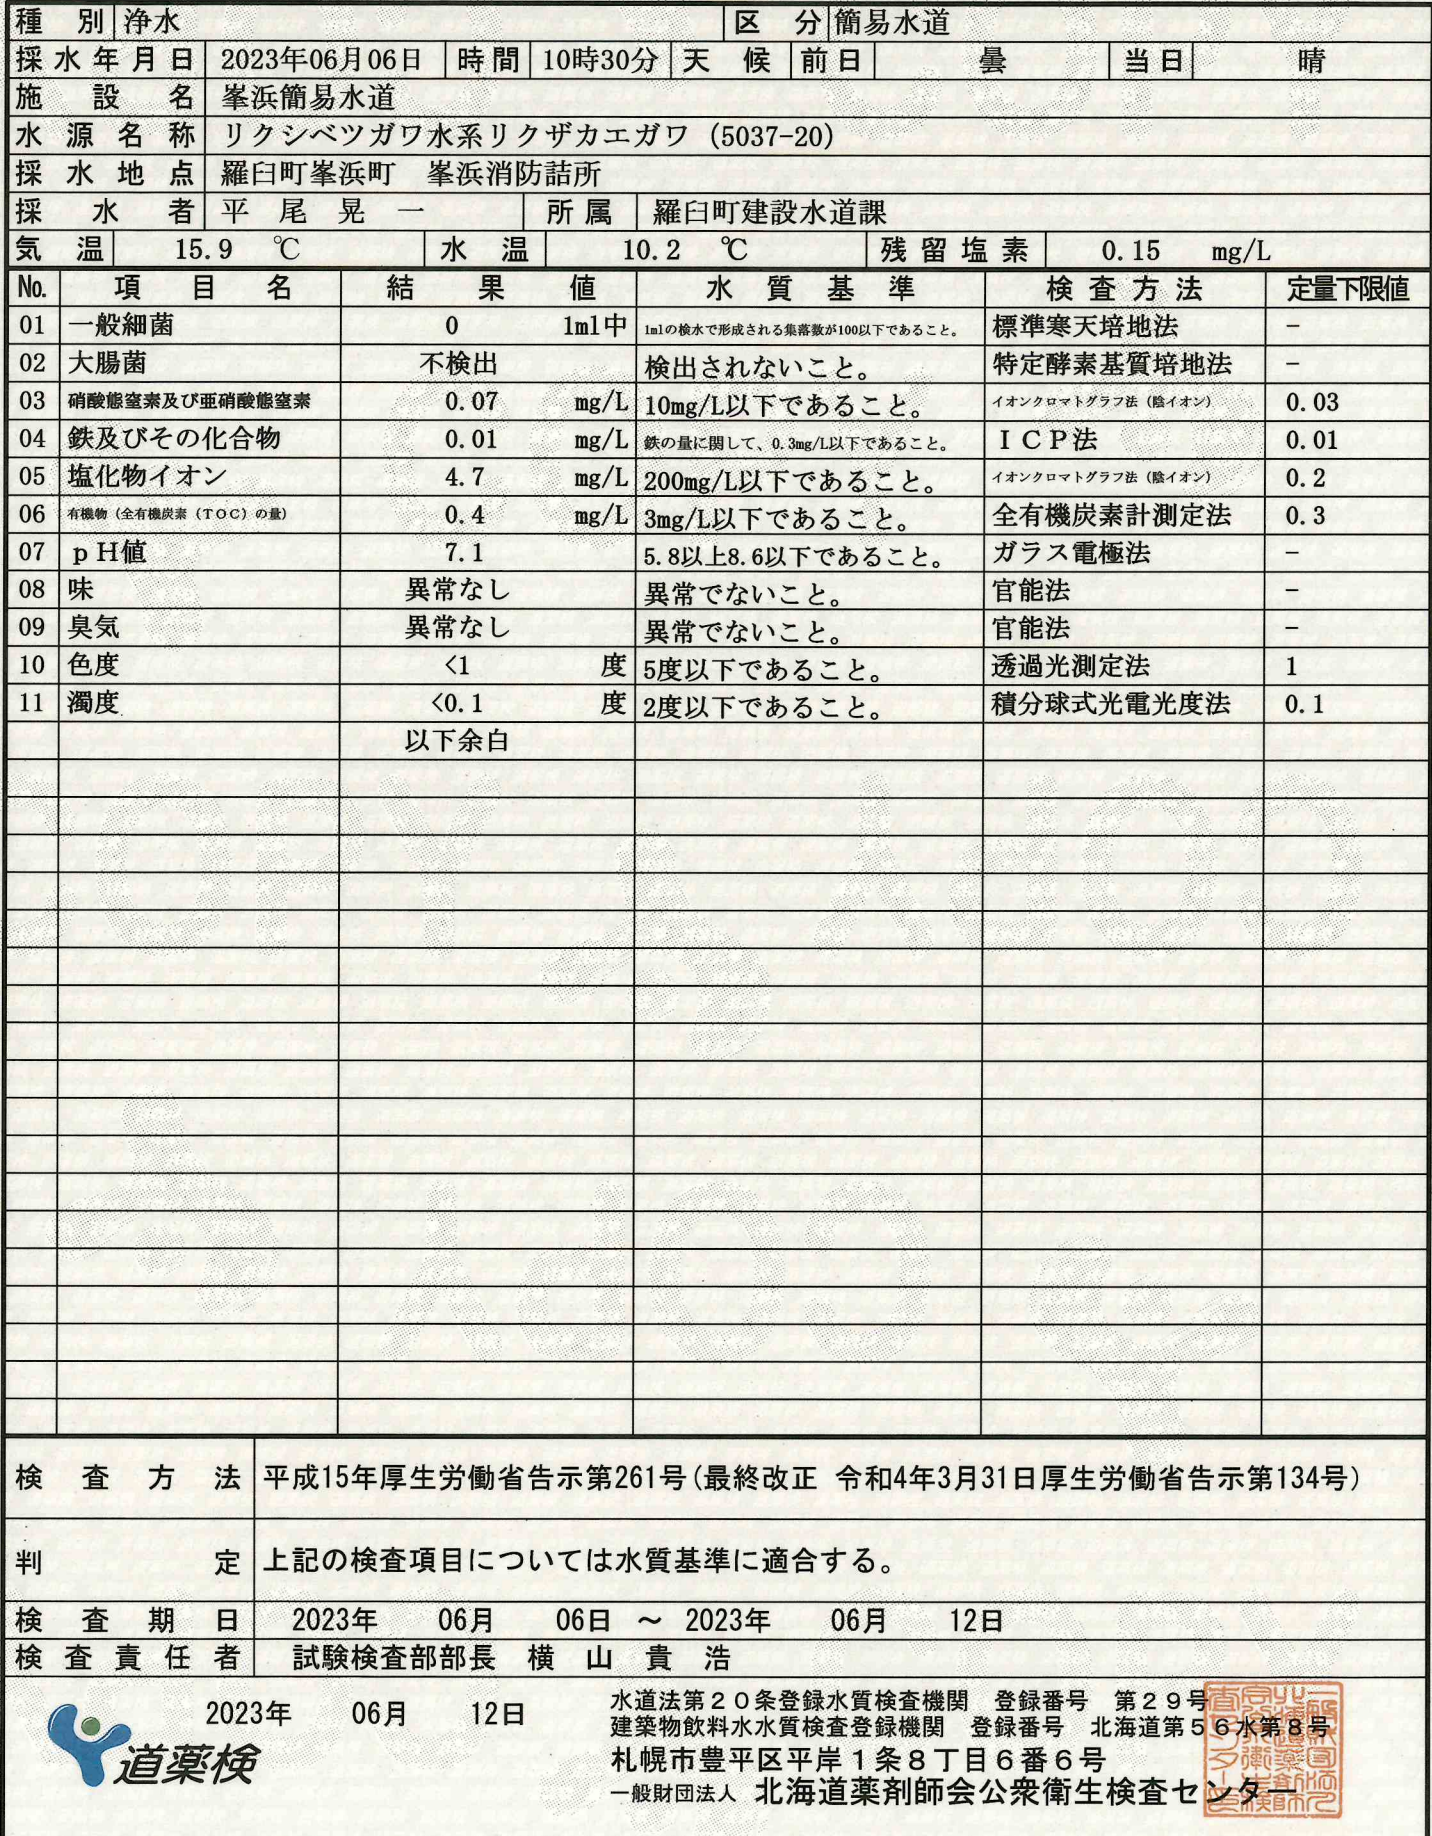 種 別 浄水 区 分 簡易水道
採水年月日 2023年06月06日 時間 10時30分 天 候 前日 曇 当日 晴
施 設 名 峯浜簡易水道
水源名称 リクシベツガワ水系リクザカエガワ (5037-20)
採水地点 羅臼町峯浜町 峯浜消防詰所
採 水 者 平 尾 晃 一 所属 羅臼町建設水道課
気 温 15.9 ℃ 水 温 10.2 ℃ 残留塩素 0.15 mg/L
No. 項 目 名 結 果 値 水 質 基 準 検査方法 定量下限値
01 一般細菌 0 1ml中 1mlの検水で形成される集落数が100以下であること。 標準寒天培地法 −
02 大腸菌 不検出 検出されないこと。 特定酵素基質培地法 −
03 硝酸態窒素及び亜硝酸態窒素 0.07 mg/L 10mg/L以下であること。 イオンクロマトグラフ法（陰イオン） 0.03
04 鉄及びその化合物 0.01 mg/L 鉄の量に関して、0.3mg/L以下であること。 ＩＣＰ法 0.01
05 塩化物イオン 4.7 mg/L 200mg/L以下であること。 イオンクロマトグラフ法（陰イオン） 0.2
06 有機物（全有機炭素（ＴＯＣ）の量） 0.4 mg/L 3mg/L以下であること。 全有機炭素計測定法 0.3
07 ｐＨ値 7.1 5.8以上8.6以下であること。 ガラス電極法 −
08 味 異常なし 異常でないこと。 官能法 −
09 臭気 異常なし 異常でないこと。 官能法 −
10 色度 <1 度 5度以下であること。 透過光測定法 1
11 濁度 <0.1 度 2度以下であること。 積分球式光電光度法 0.1
以下余白
検 査 方 法 平成15年厚生労働省告示第261号(最終改正 令和4年3月31日厚生労働省告示第134号)
判 定 上記の検査項目については水質基準に適合する。
検 査 期 日 2023年 06月 06日 ～ 2023年 06月 12日
検査責任者 試験検査部部長 横 山 貴 浩
2023年 06月 12日
道薬検
水道法第２０条登録水質検査機関 登録番号 第２９号
建築物飲料水水質検査登録機関 登録番号 北海道第５６水第８号
札幌市豊平区平岸１条８丁目６番６号
一般財団法人 北海道薬剤師会公衆衛生検査センター